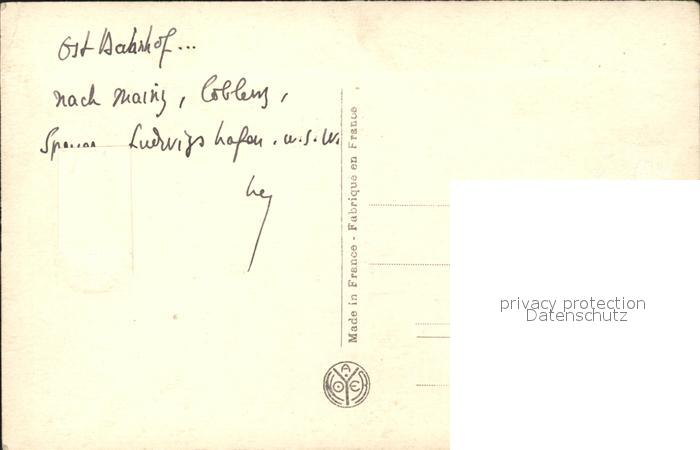 Ost Bahnhof...
nach Mainz, Coblenz,
Speyer Ludwigshafen. u.s.w.
Made in France - Fabriqué en France
privacy protection
Datenschutz